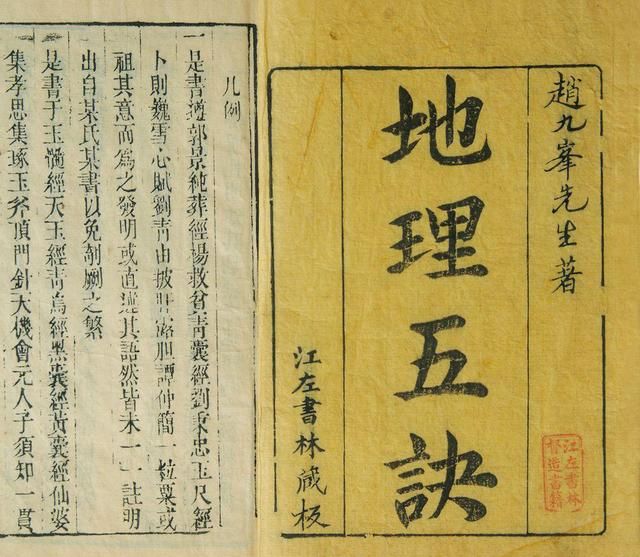 趙九峯先生著
地理五訣
江左書林蔵板
江左書林
督造書籍
凡例
一是書遵郭景純葬經楊救貧青囊經劉秉忠玉尺經
卜則巍雪心賦劉青田披肝露胆譚仲簡一粒粟或
祖其意而為之發明或直遵其語然皆未一一註明
出自某氏某書以免剞劂之繁
是書于玉髓經天玉經青烏經黑囊經黃囊經仙婆
集孝思集琢玉斧頂門針天機會元人子須知一貫